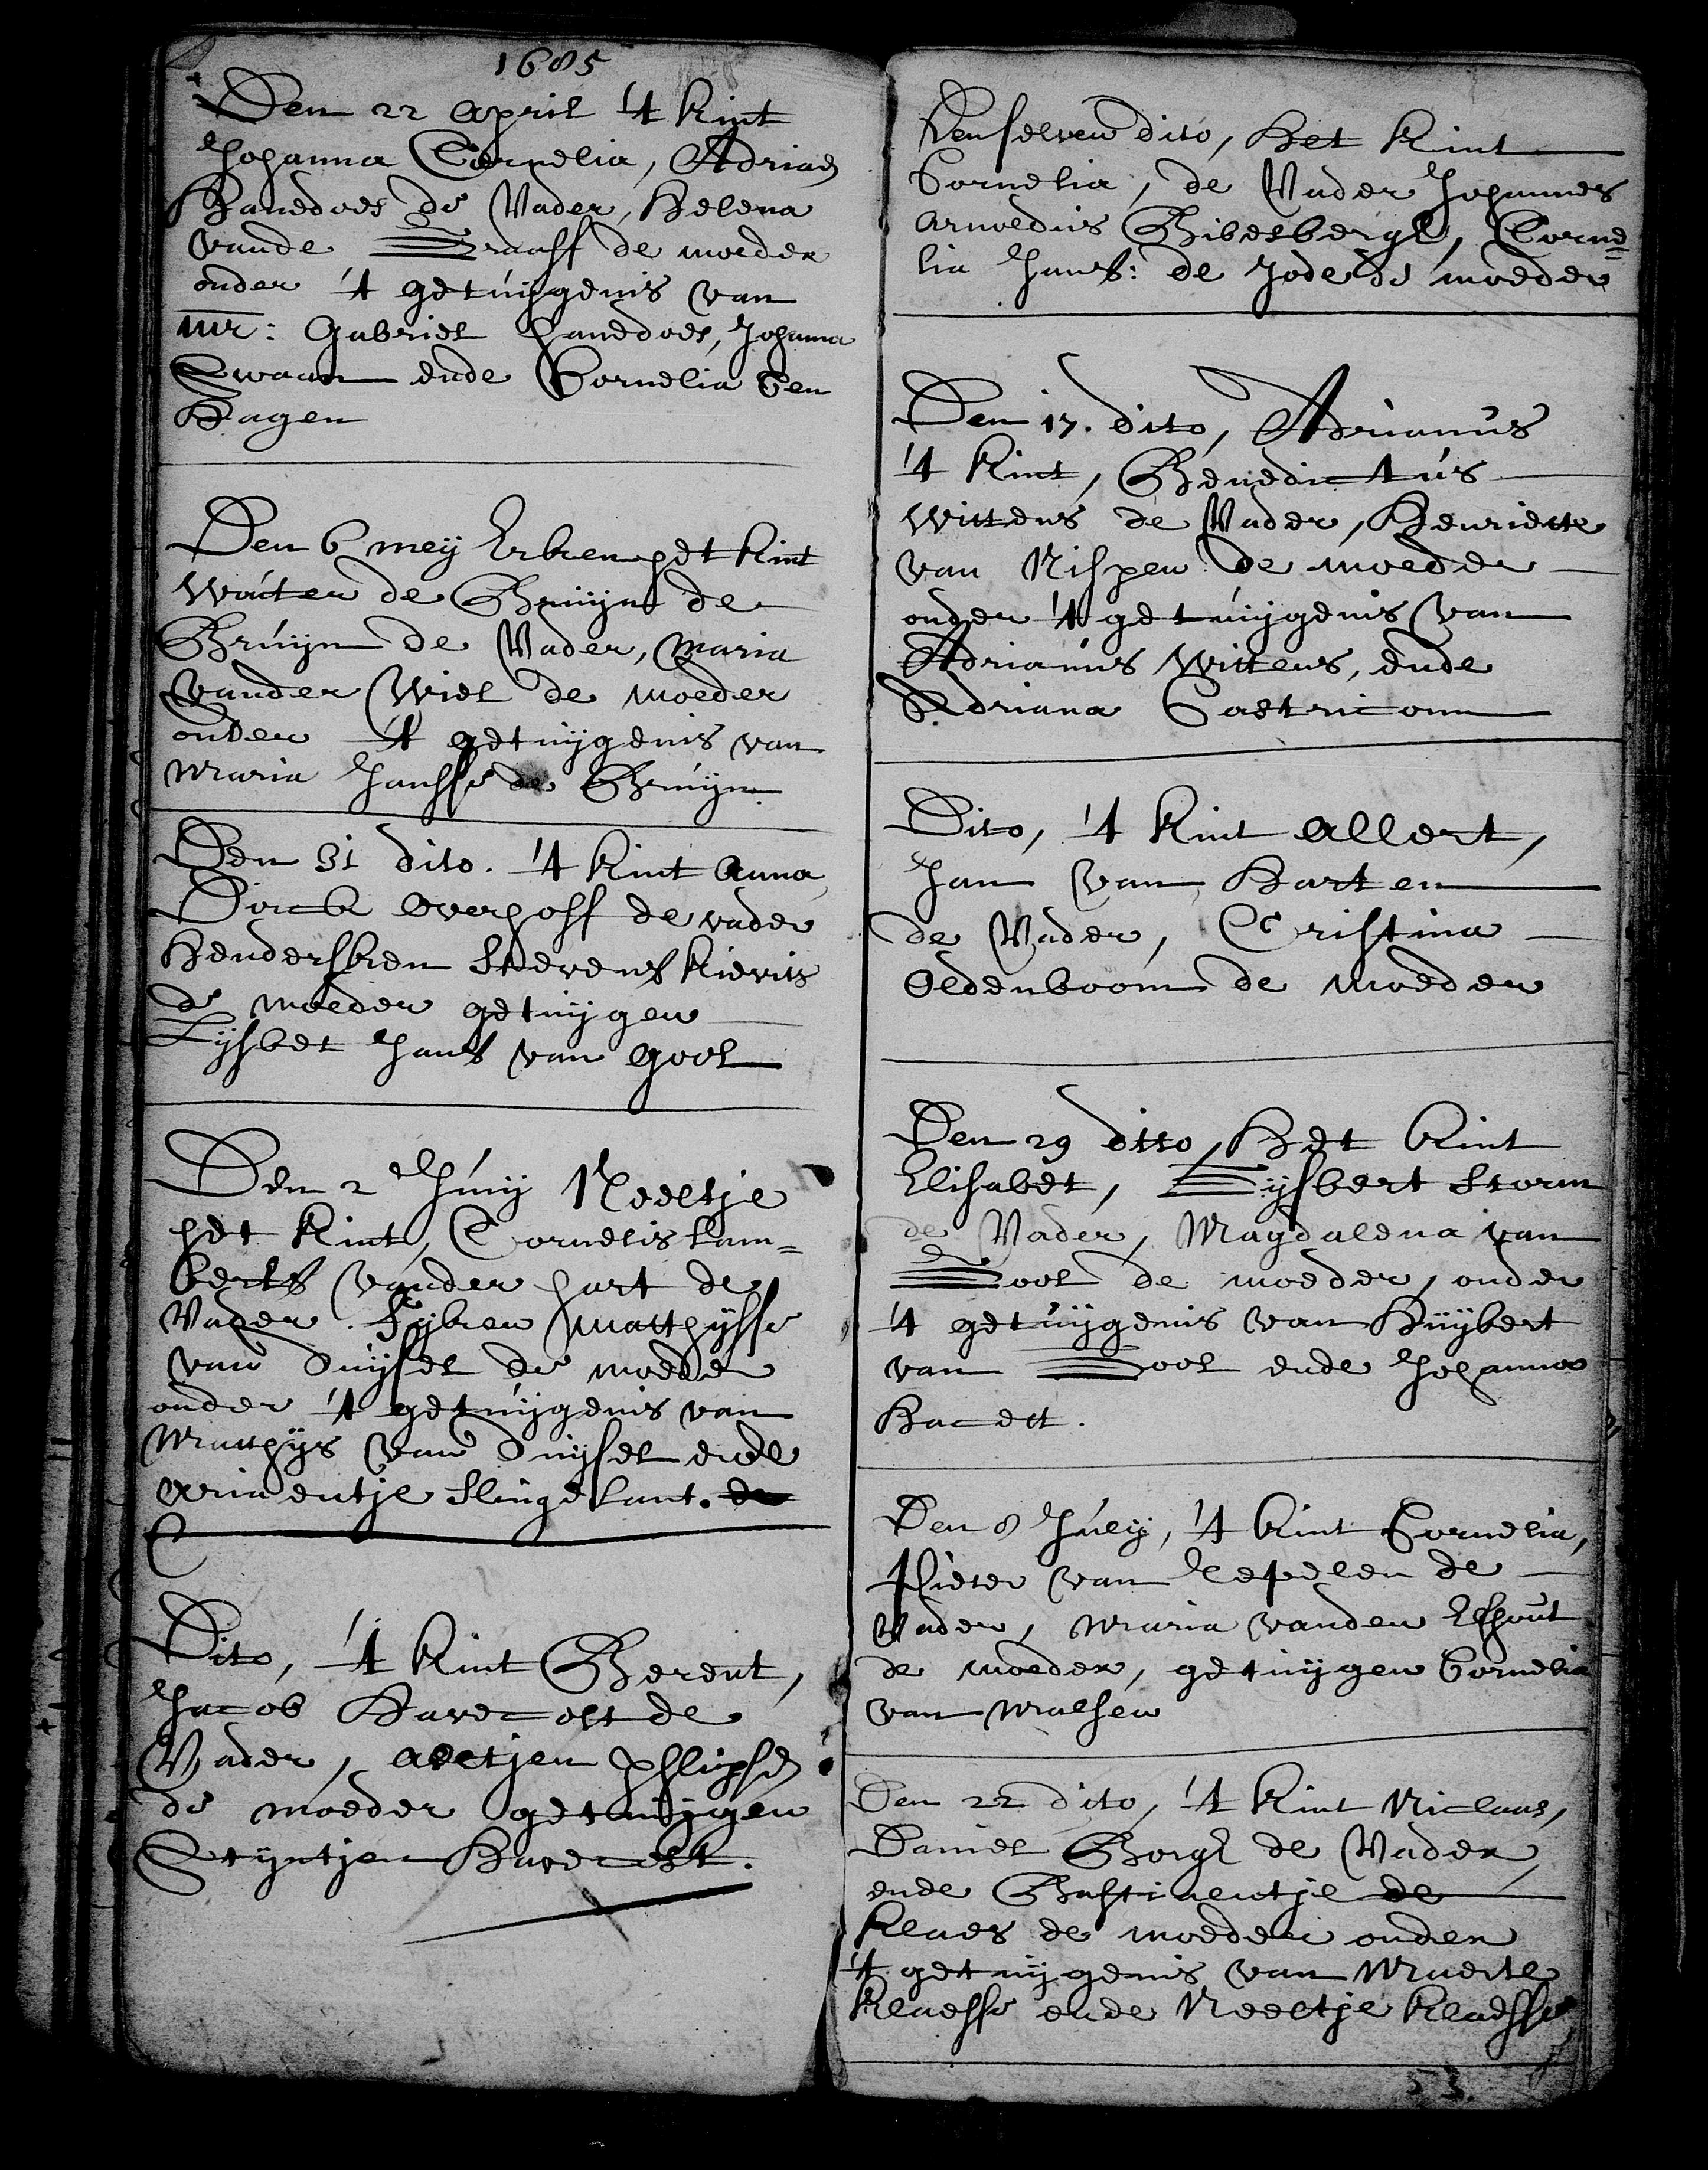 1685
Den 22 April 't kint
Johanna Cornelia, Adriaen
Hanedoes de Vader, Helena
vande Graaff de moeder
onder 't getuijgenis van
mr: Gabriel hanedoes, Johanna
Swaan ende Cornelia ten
Hagen
Den 6 meij het kint
Wouter de Bruijn de
Bruijn de Vader, Maria
vander Wiel de moeder
onder 't getuijgenis van
Maria Jansse de Bruijn
Den 31 dito. 't kint Anna
Dirck Overhoff de vader
Hendersken Stevens kievits
de moeder getuijgen
Lijsbet Jans van Gool
Den 2 Junij Neeltje
het kint, Cornelis Lam=
berts vander hart de
Vader. Sijken Matthijsse
van Duijsel de moeder
onder 't getuijgenis van
Matthijs van Duijsel ende
Ariaentje Slingelant.
Dito, 't kint Berent,
Jacob Havecost de
Vader, Aeltjen Phlipse
de moeder getuijgen
Stijntjen Havecost.
Denselven dito, Het kint
Cornelia, de Vader Johannes
Arnoldus Bibesbergh, Corne=
lia Jans: de Jode de moeder
Den 17. dito, Adrianus
't kint, Benedictus
Wittens de Vader, Henriette
van Nispen de moeder
onder 't getuijgenis van
Adrianus Wittens, ende
Adriana Castricom
Dito, 't kint Allert,
Jan van Harten
de Vader, Cristina
Oldenboom de moeder
Den 29 ditto, Het kint
Elisabet, Gijsbert Storm
de Vader, Magdalena van
Gool de moeder, onder
't getuijgenis van Huijbert
van Gool ende Johanna
Hackett.
Den 8 Julij, 't kint Cornelia,
Pieter van Lepelen de
Vader, Maria vanden Eshout
de moeder, getuijgen Cornelia
van Malsen
Den 22 dito, 't kint Niclaas,
Daniel Borgh de Vader,
ende Bastiaentje de
Klaes de moeder onder
't getuijgenis van Maertje
Klaesse ende Neeltje Klaesse
53.